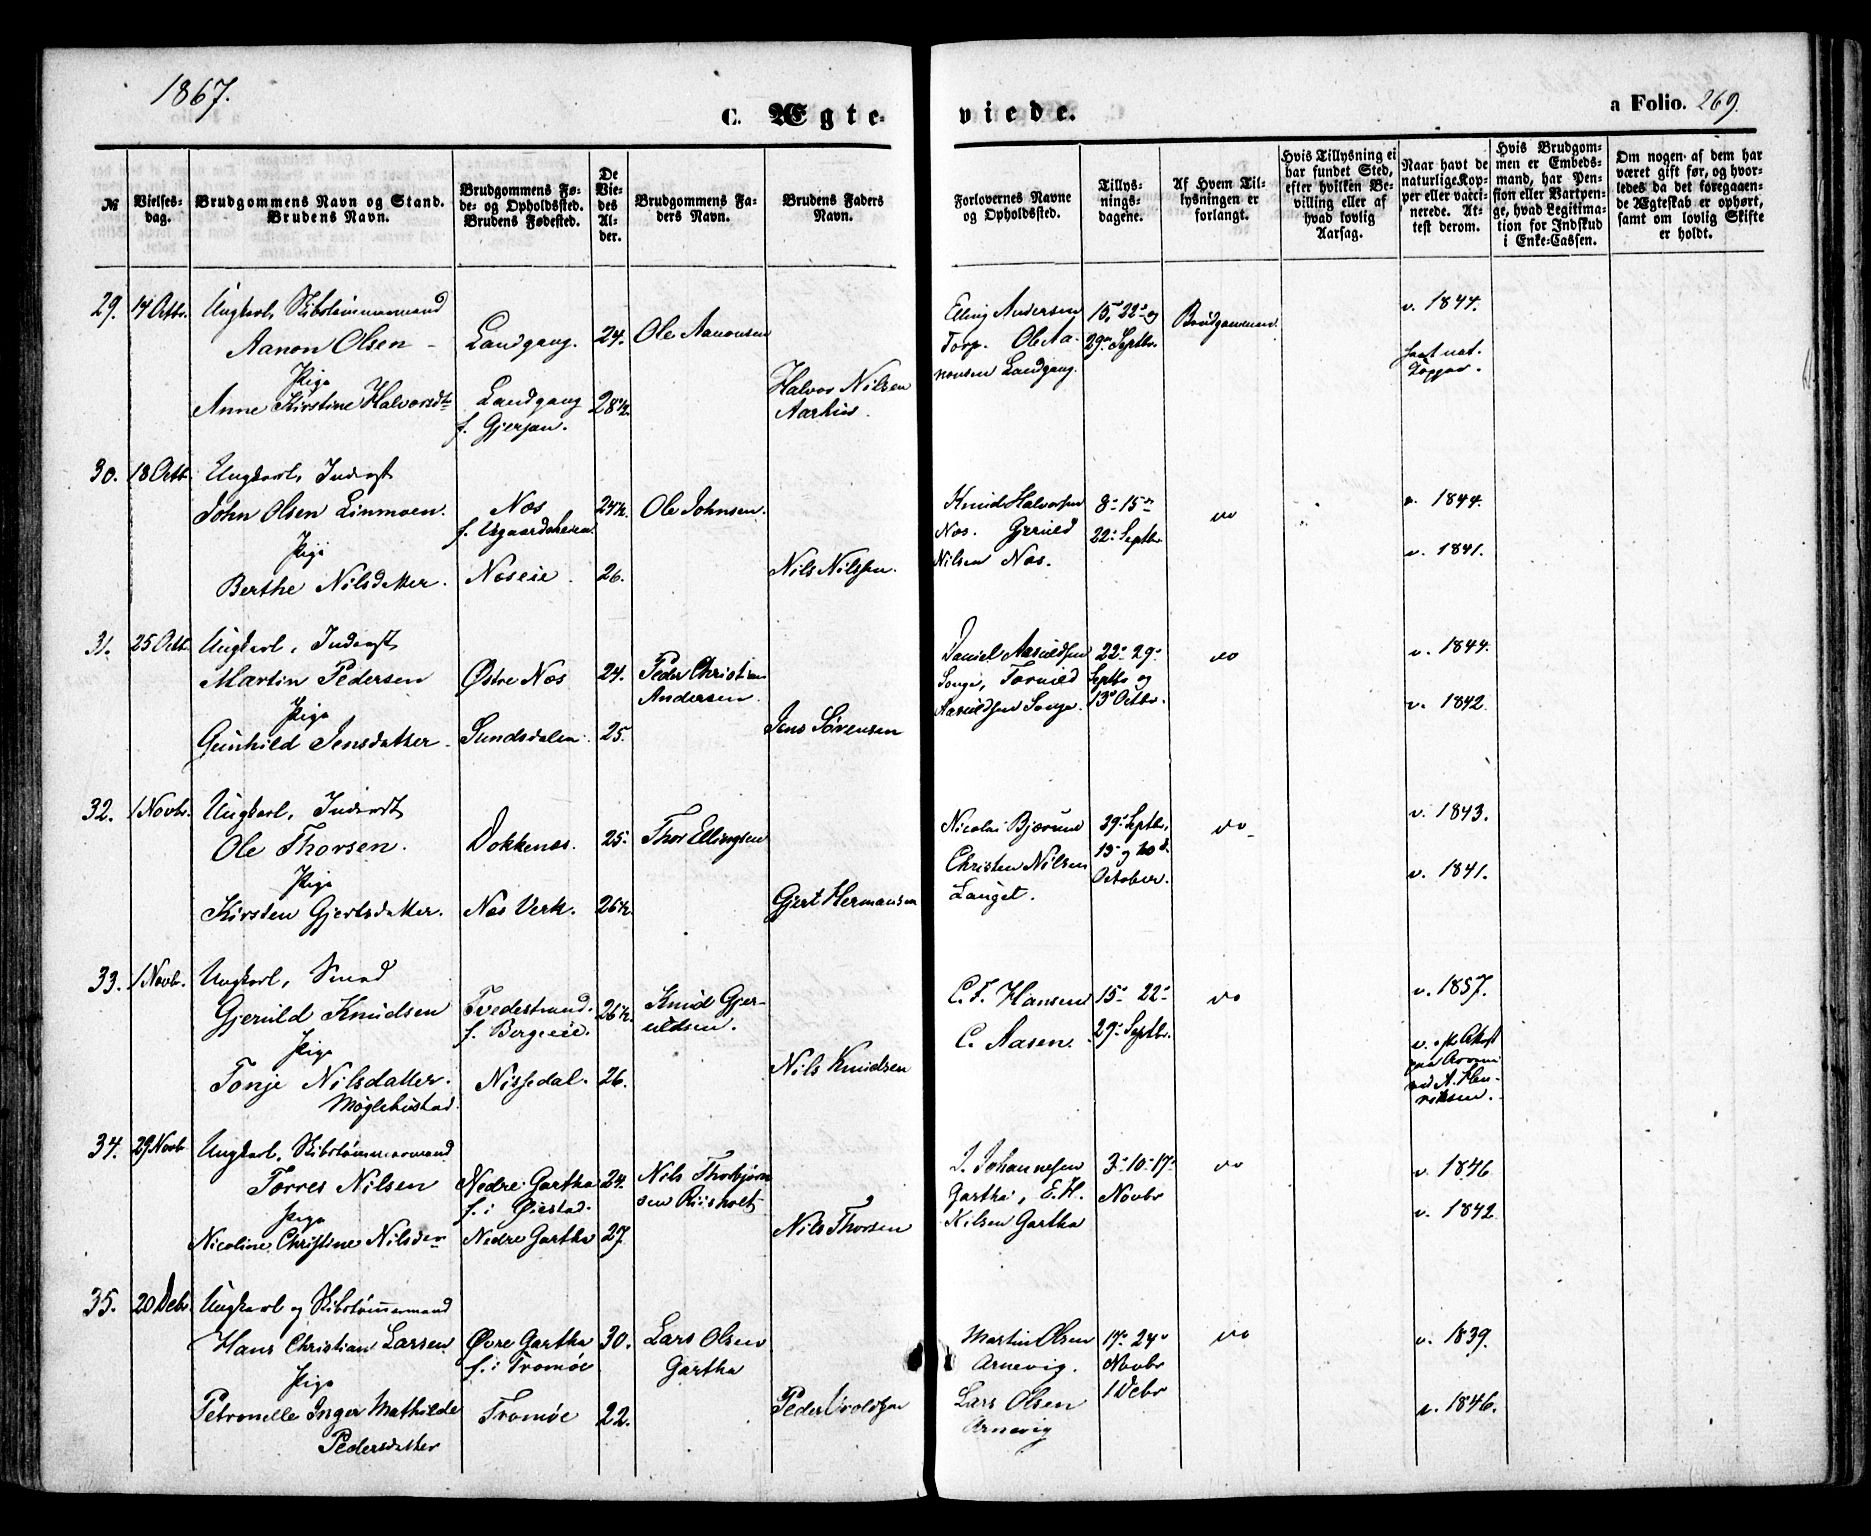 1867.
C. Ægteviede.
a Folio. 269.
№
Vielsesdag.
Brudgommens Navn og Stand. Brudens Navn.
Brudgommens Føde- og Opholdssted. Brudens Fødested.
De Viedes Alder.
Brudgommens Faders Navn.
Brudens Faders Navn.
Forlovernes Navne og Opholdssted.
Tillysningsdagene.
Af Hvem Tillysningen er forlangt.
Hvis Tillysning ei har fundet Sted, efter hvilken Bevilling eller af hvad lovlig Aarsag.
Naar havt de naturlige Kopper eller vaccinerede. Attest derom.
Hvis Brudgommen er Embedsmand, har Pension eller Vartpenge, hvad Legitimation for Indskud i Enke-Cassen.
Om nogen af dem har været gift før, og hvorledes da det foregaaende Ægteskab er ophørt, samt om lovlig Skifte er holdt.
29. 14 Octbr. Ungkarl, Skibstømmermand
Aanon Olsen – Landgang. 24. Ole Aanonsen Elling Andersen 15, 22de og Brudgommen v. 1844.
Torp. Ole Aanonsen Landgang. 29de Septbr.
Pige
Anne Kirstine Halvorsdtr Landgang 28½. Halvor Nilsen havt nat.
f. Gjersøn. Aarhus. Kopper.
30. 18 Octb. Ungkarl, Inderst
John Olsen Linmoen. Næs 24½. Ole Johnsen. Knud Halvorsen 8de 15de do v. 1844.
Næs. Gjeruld 22de Septbr
Pige
Berthe Nilsdatter. Næseie. 26. Nils Nilssen. Nilsen Næs. v. 1841.
31. 25 Octb. Ungkarl, Inderst
Martin Pedersen Østre Næs 24. Peder Christian Andersen. Daniel Aasuldsen 22de 29de do v. 1844.
Songe, Toruld Septbr og
Pige
Gunhild Jensdatter Sundsdalen. 25. Jens Sørensen Aasuldsen Songe. 13de Octbr. v. 1842.
32. 1 Novbr. Ungkarl, Inderst
Ole Thorsen. Dokkenæs. 25. Thor Ellingsen Nicolai Bjørum 29de Septbr, do v. 1843.
Christen Nilsen 13de og 20de
Pige
Kirsten Gjertsdatter. Næs Verk. 26½. Gjert Hermansen Langet. October. v. 1841.
33. 1 Novb. Ungkarl, Smed
Gjeruld Knudsen Tvedestrand. 26½. Knud Gjeruldsen. C. F. Hansen 15de 22de do v. 1857.
f. Bergeeie. C. Aasen. 29de Septbr.
Pige
Tonje Nilsdatter. Nissedal. 26. Nils Knudsen v.
Møglebustad.
34. 29 Novb Ungkarl, Skibstømmermand
Torres Nilsen Nedre Gartha 24. Nils Thorbjørnsen Riisholt J. Johannesen 3de 10de 17de do v. 1846
f. i Øiestad. Gartha, E. H. Novbr
Pige
Nicoline Christine Nilsdtr Nedre Gartha 27 Nils Thorsen Nilsen Gartha v. 1842
35. 20 Debr. Ungkarl og Skibstømmermand
Hans Christian Larsen Øvre Gartha 30. Lars Olsen Gartha Martin Olsen Arnevig. 17de 24de do v. 1839.
f. i Tromøe Novbr
Pige
Petronelle Inger Mathilde Pedersdatter Tromøe 22. Lars Olsen Arnevig 1 Debr v. 1846.